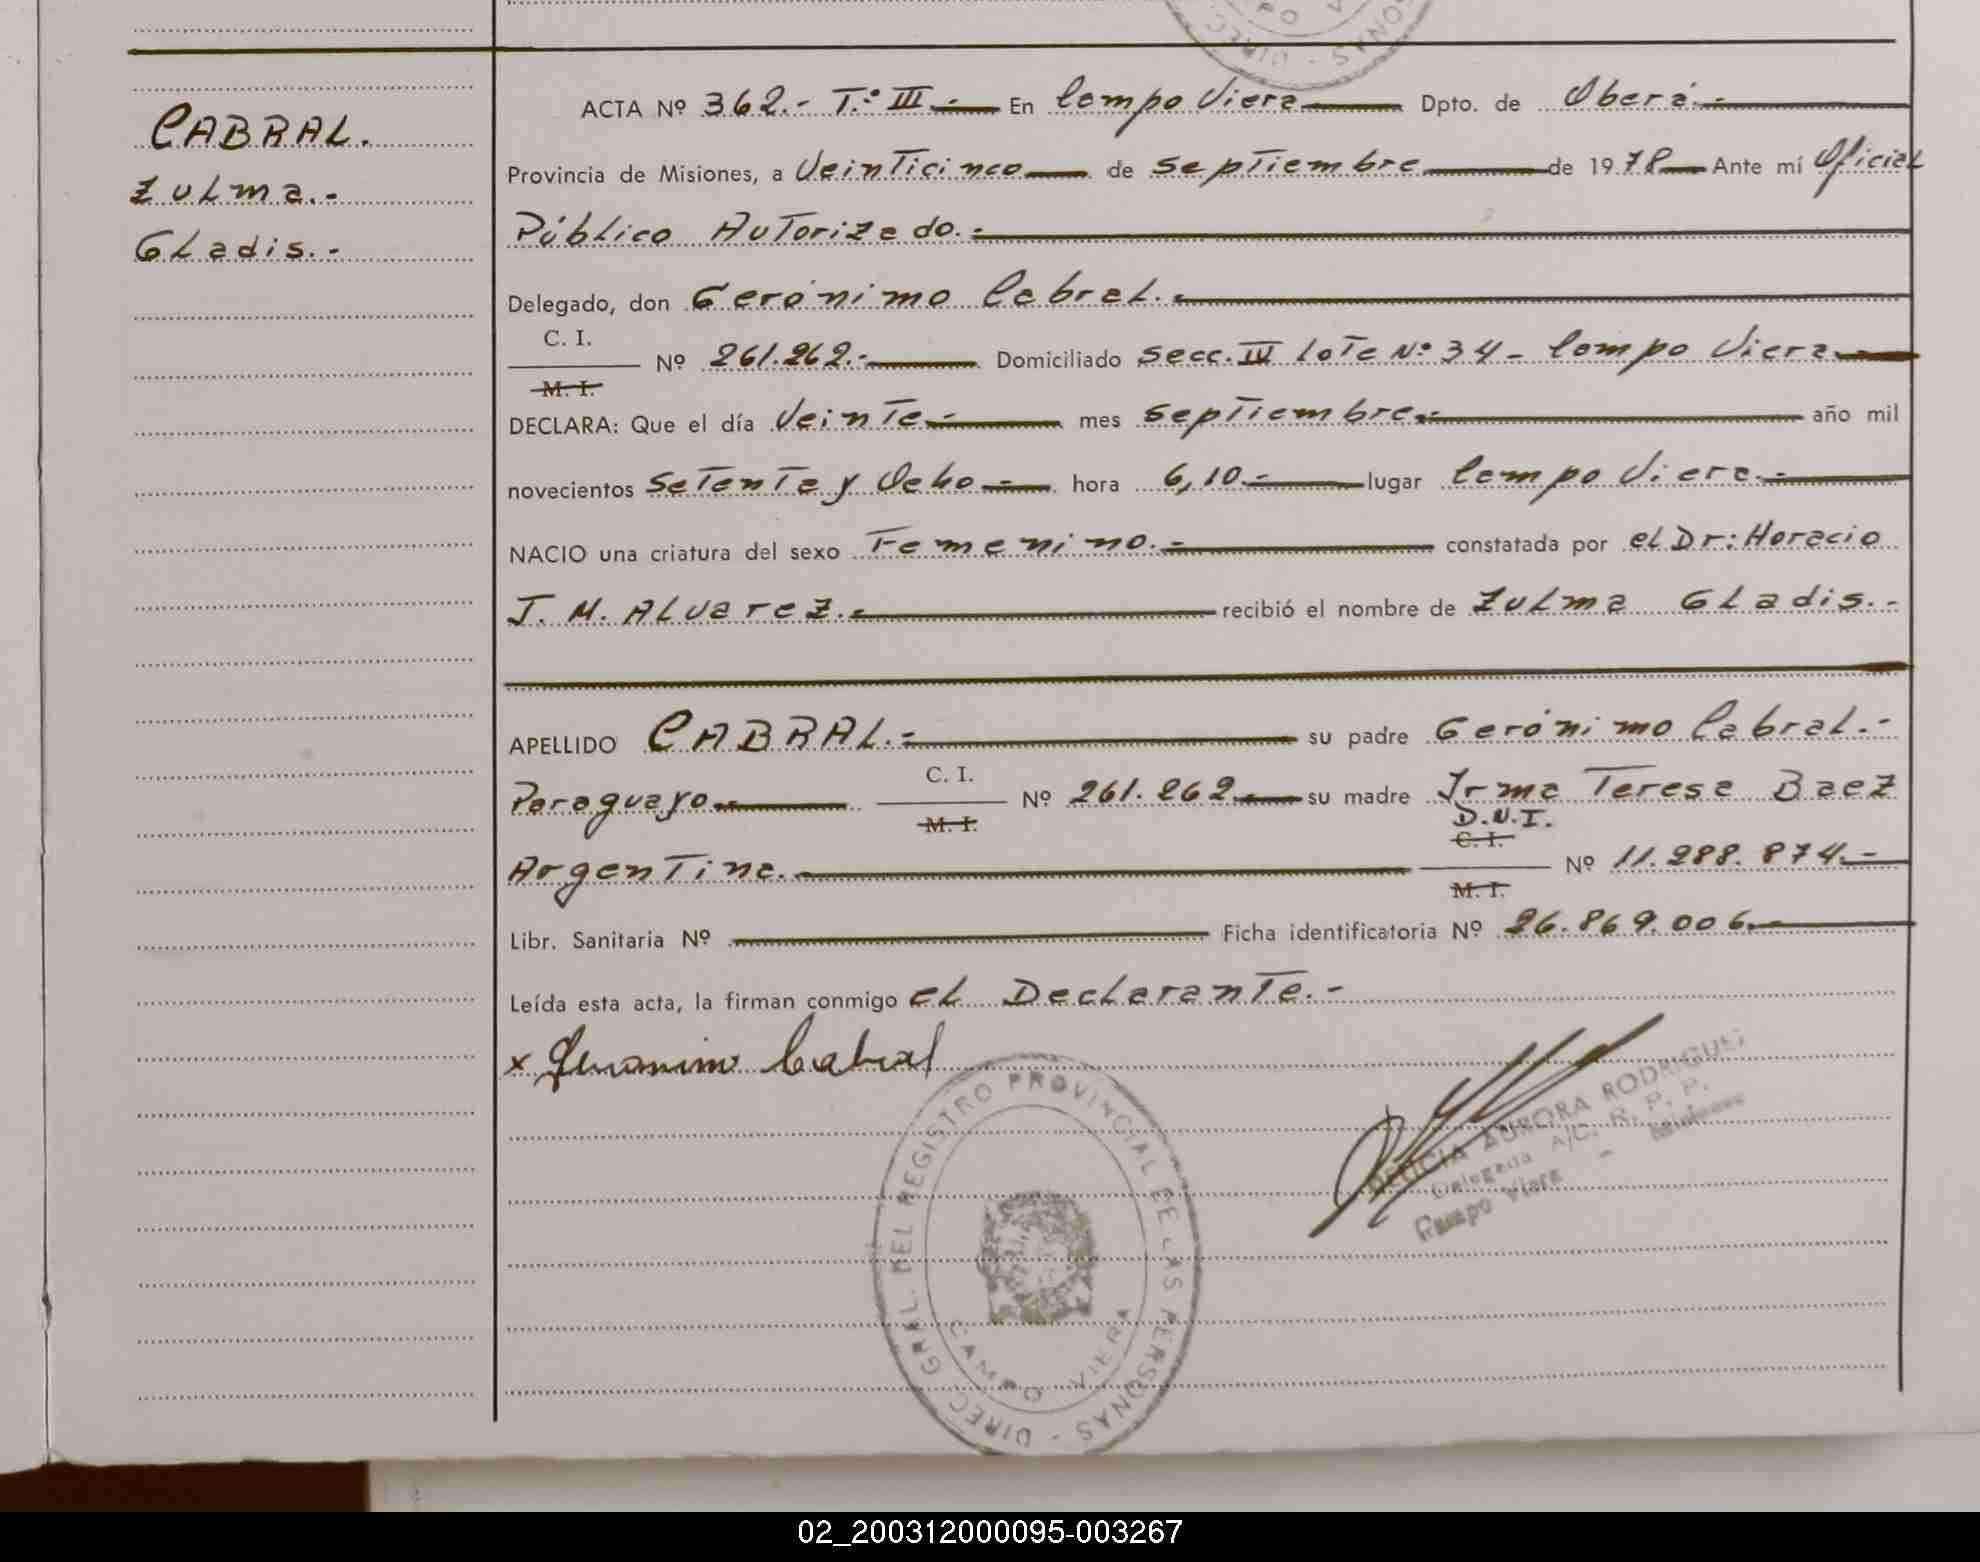 CABRAL.
Zulma.-
Gladis.-
ACTA Nº 362.- T.º III.- En Campo Viera Dpto. de Oberá.-
Provincia de Misiones, a Veinticinco de Septiembre de 1978 Ante mí Oficial
Público Autorizado.-
Delegado, don Gerónimo Cabral.-
C. I.
Nº 261.262.- Domiciliado Secc. IV Lote Nº 34 - Campo Viera.-
M. I.
DECLARA: Que el día Veinte.- mes Septiembre.- año mil
novecientos Setenta y Ocho.- hora 6,10.- lugar Campo Viera.-
NACIO una criatura del sexo Femenino.- constatada por el Dr: Horacio
J. M. Alvarez.- recibió el nombre de Zulma Gladis.-
APELLIDO CABRAL.- su padre Gerónimo Cabral.-
C. I.
Paraguayo.- Nº 261.262.- su madre Irma Teresa Baez
M. I.
D.N.I.
C. I.
Argentina.- Nº 11.288.874.-
M. I.
Libr. Sanitaria Nº Ficha identificatoria Nº 26.869.006.-
Leída esta acta, la firman conmigo el Declarante.-
x Geronimo Cabral
DIREC. GRAL. DEL REGISTRO PROVINCIAL DE LAS PERSONAS -
CAMPO VIERA
AURORA RODRIGUEZ
Delegada A/C. R. P. P.
Campo Viera - Misiones
02_200312000095-003267